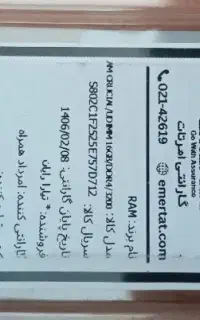 Go With Assurance
گارانتی امرتات
021-42619 emertat.com
نام برند: RAM
مدل کالا: RAM CRUCIAL /UDIMM 16GB/DDR4/3200
سریال کالا: S802C1F2525E757D712
تاریخ پایان گارانتی: 1406/02/08
فروشنده: * تیرا رایان
گارانتی کننده: امرداد همراه